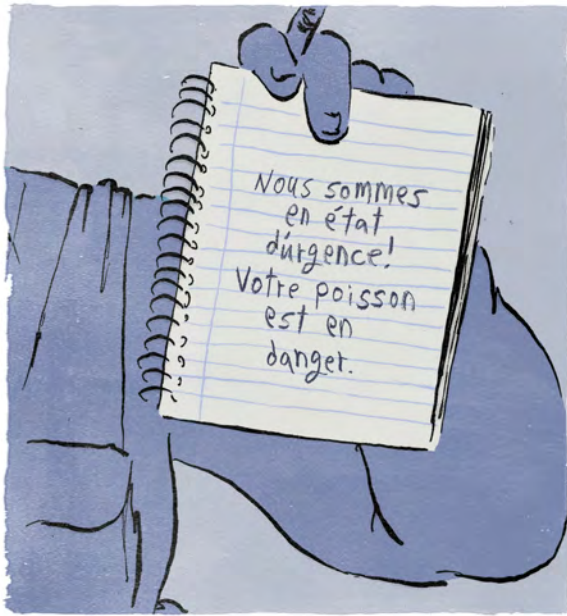 Nous sommes
en état
d'urgence!
Votre poisson
est en
danger.